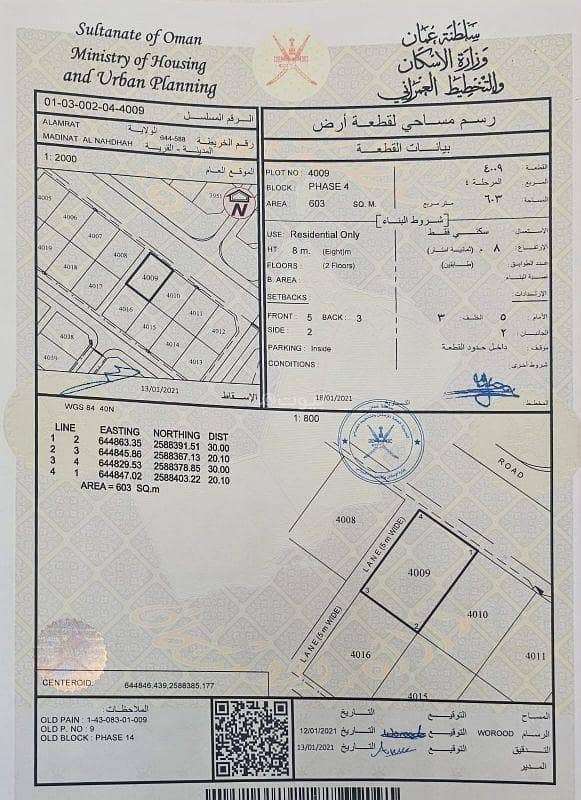 Sultanate of Oman
Ministry of Housing
and Urban Planning
سلطنة عمان
وزارة الإسكان
والتخطيط العمراني
01-03-002-04-4009 الرقم المسلسل
ALAMRAT الولاية
644-588 رقم الخريطة
MADINAT AL NAHDHAH المدينة - القرية
1: 2000 الموقع العام
3951
N
4005
4006
4007
4008
4009
4010
4011
4012
4013
4014
4015
4016
4017
4038
4039
13/01/2021 الإسقاط
رسم مساحي لقطعة أرض
بيانات القطعة
PLOT NO : 4009 القطعة ٤٠٠٩
BLOCK : PHASE 4 المربع المرحلة ٤
AREA : 603 SQ. M. المساحة ٦٠٣ متر مربع
[ شروط البناء ]
USE: Residential Only الاستعمال: سكني فقط
HT: 8 m. (Eight)m الارتفاع: ٨ م (ثمانية امتار)
FLOORS (2 Floors) عدد الطوابق: (طابقين)
B. AREA : نسبة البناء
SETBACKS الارتدادات:
FRONT : 5 BACK : 3 الأمام ٥ الخلف: ٣
SIDE : 2 الجانبان: ٢
PARKING : Inside موقف: داخل حدود القطعة
CONDITIONS : شروط أخرى
18/01/2021 المخطط
WGS 84 40N
LINE EASTING NORTHING DIST
1 2 644863.35 2588391.51 30.00
2 3 644845.86 2588367.13 20.10
3 4 644829.53 2588378.85 30.00
4 1 644847.02 2588403.22 20.10
AREA = 603 SQ.m
1: 800
ROAD
LANE (5 m WIDE)
LANE (5 m WIDE)
4008
4009
4
1
2
3
4010
4016
4011
4015
CENTEROID: 644846.439,2588385.177
الملاحظات:
OLD PAIN : 1-43-083-01-009
OLD P. NO : 9
OLD BLOCK : PHASE 14
المساح التوقيع التاريخ
الرسام WOROOD التوقيع التاريخ 12/01/2021
التدقيق التوقيع التاريخ 13/01/2021
المدير